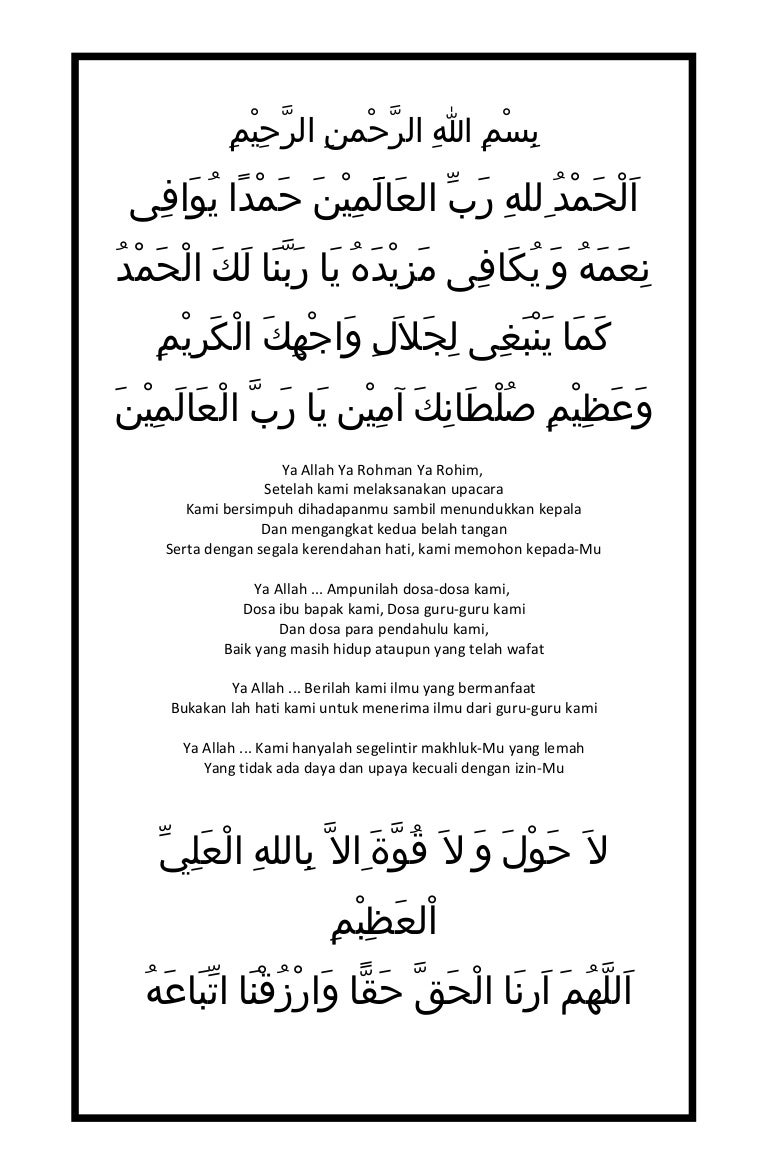 بِسْمِ اللهِ الرَّحْمنِ الرَّحِيْمِ
اَلْحَمْدُ ِللهِ رَبِّ العَالَمِيْنَ حَمْدًا يُوَافِى
نِعَمَهُ وَ يُكَافِى مَزِيْدَهُ يَا رَبَّنَا لَكَ الْحَمْدُ
كَمَا يَنْبَغِى لِجَلاَلِ وَاجْهِكَ الْكَرِيْمِ
وَعَظِيْمِ صُلْطَانِكَ آمِيْن يَا رَبَّ الْعَالَمِيْنَ
Ya Allah Ya Rohman Ya Rohim,
Setelah kami melaksanakan upacara
Kami bersimpuh dihadapanmu sambil menundukkan kepala
Dan mengangkat kedua belah tangan
Serta dengan segala kerendahan hati, kami memohon kepada-Mu
Ya Allah ... Ampunilah dosa-dosa kami,
Dosa ibu bapak kami, Dosa guru-guru kami
Dan dosa para pendahulu kami,
Baik yang masih hidup ataupun yang telah wafat
Ya Allah ... Berilah kami ilmu yang bermanfaat
Bukakan lah hati kami untuk menerima ilmu dari guru-guru kami
Ya Allah ... Kami hanyalah segelintir makhluk-Mu yang lemah
Yang tidak ada daya dan upaya kecuali dengan izin-Mu
لاَ حَوْلَ وَ لاَ قُوَّةَ ِالاَّ بِاللهِ الْعَلِيِّ
اْلعَظِبْمِ
اَللَّهُمَ اَرِنَا الْحَقَّ حَقًّا وَارْزُقْنَا اتِّبَاعَهُ